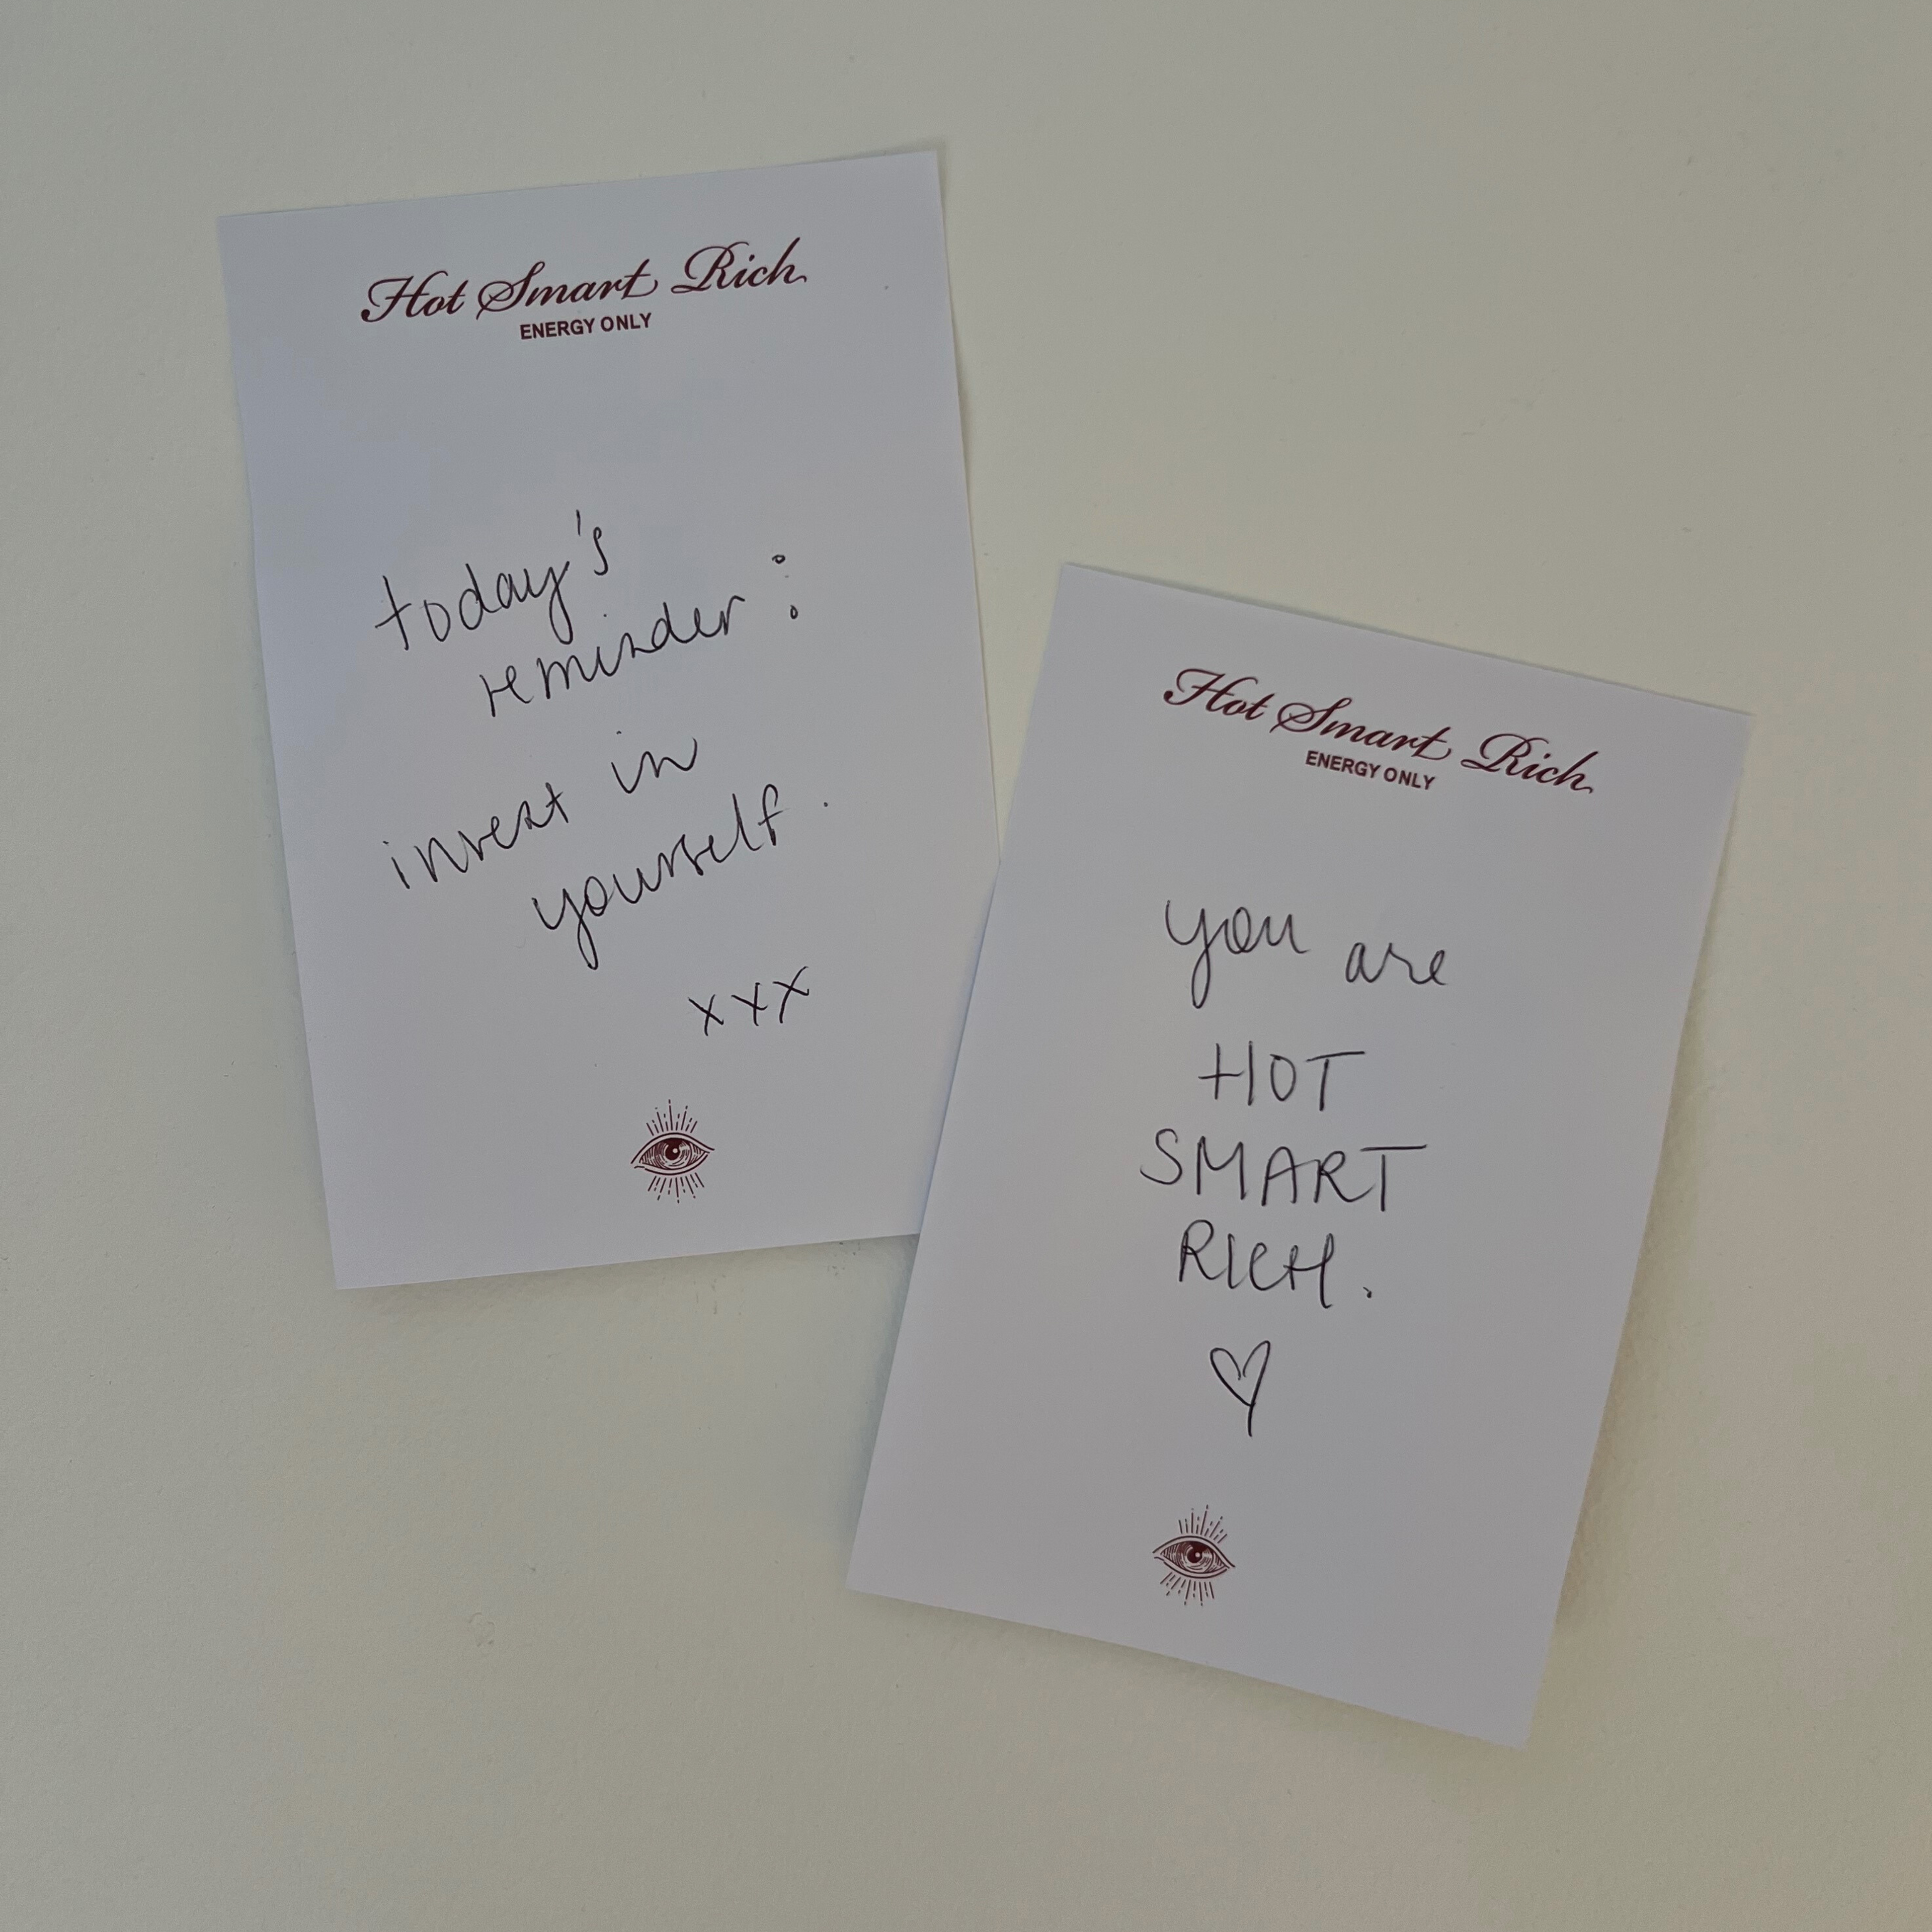 Hot Smart Rich
ENERGY ONLY
today's
reminder:
invest in
yourself.
xxx
Hot Smart Rich
ENERGY ONLY
you are
HOT
SMART
RICH.